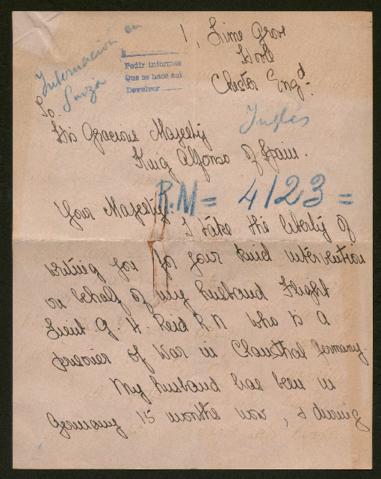 1, Lime Grov
Hoole
Chester Engd.
Internacion en
Suiza
Pedir informes
Que se hace aui
Devolver
To.
His Gracious Majesty
King Alfonso of Spain.
Ingles
R.M = 4123 =
Your Majesty I take the liberty of
writing you for your kind intervention
on behalf of my husband Flight
Lieut G. H. Reid R.N who is a
prisoner of War in Clausthal Germany.
My husband has been in
Germany 15 months now, & during